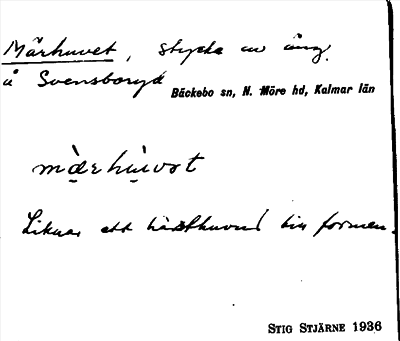 Märhuvet, stycke av äng.
å Svensboryd
Bäckebo sn, N. Möre hd, Kalmar län
mạ̀rhụ̀vət
Liknar ett hästhuvud till formen.
STIG STJÄRNE 1936